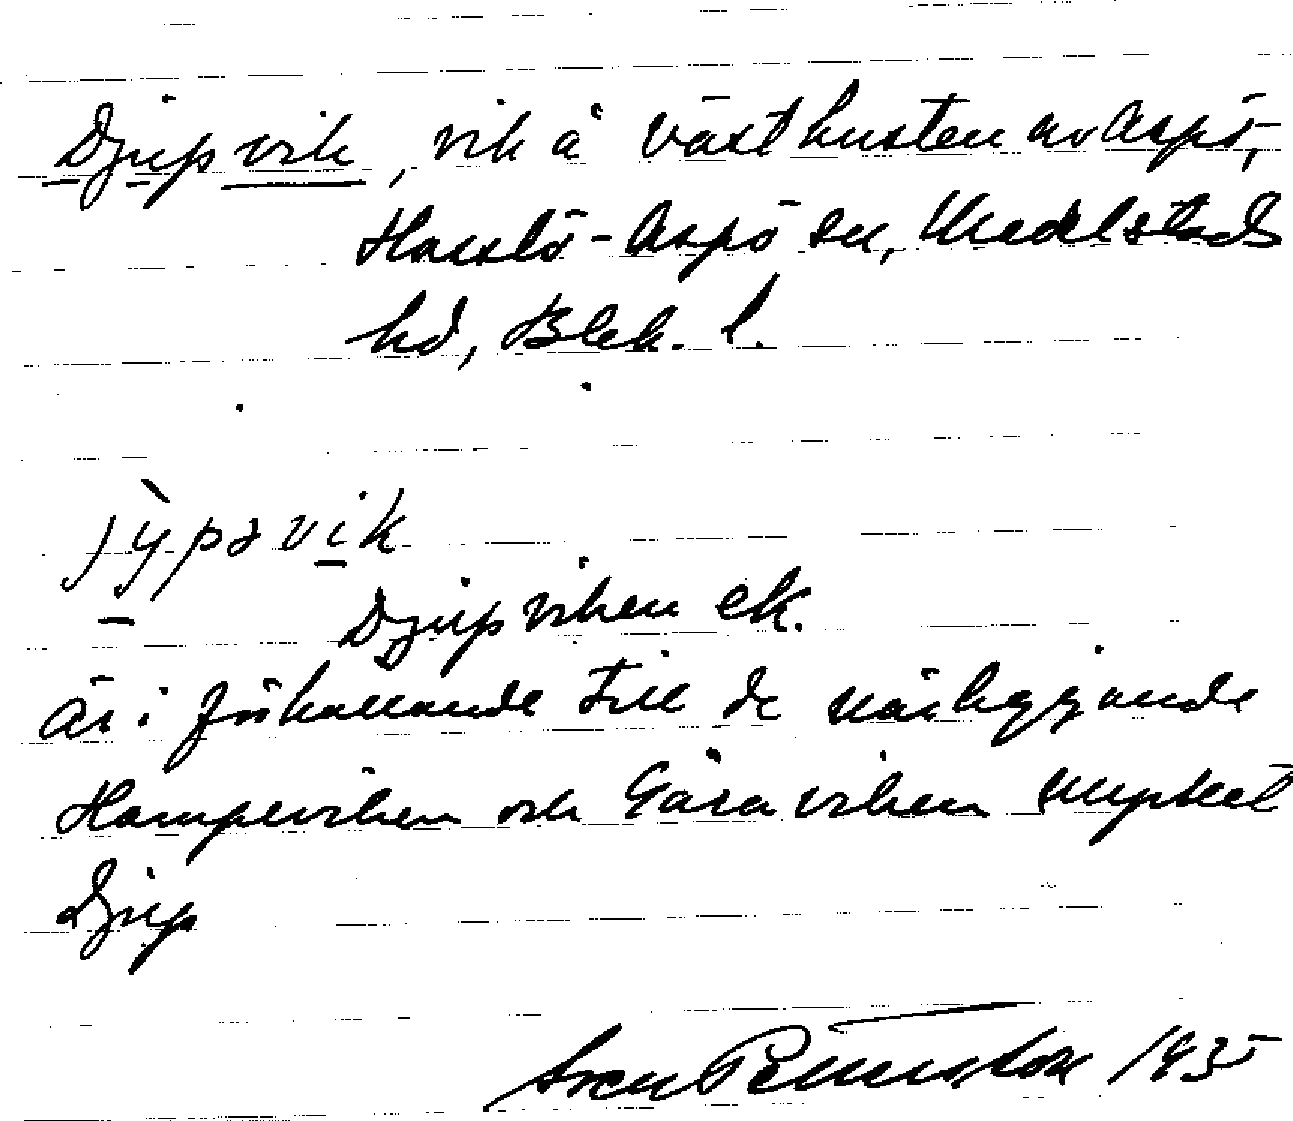 Djupvik, vik å västkusten av Aspö,
Hasslö-Aspö sn, Medelstads
hd, Blek. l.
jỳpəvik
Djupviken ek.
Är i förhållande till de närliggande
Hampeviken och Gåsaviken mycket
djup
Sven 1935